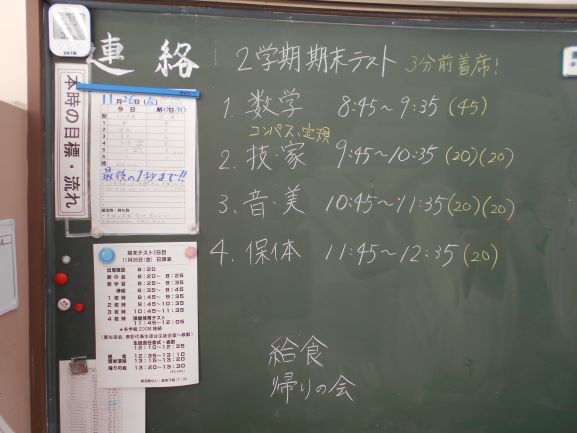 連絡
2学期期末テスト 3分前着席!
1. 数学 8:45～9:35 (45)
コンパス、定規
2. 技・家 9:45～10:35 (20)(20)
3. 音・美 10:45～11:35 (20)(20)
4. 保体 11:45～12:35 (20)
給食
帰りの会
本時の目標・流れ
11月26日
今日
最後の1秒まで!!
期末テスト2日目
11月26日(金) 日課表
8:20
朝の会 8:20～8:25
朝学習 8:25～8:35
準備 8:35～8:45
1校時 8:45～9:35
2校時 9:45～10:35
3校時 10:45～11:35
4校時 保健体育テスト
11:45～12:05
12:10～12:35
給食 12:35～13:10
13:15～13:20
帰りの会 13:20～13:30